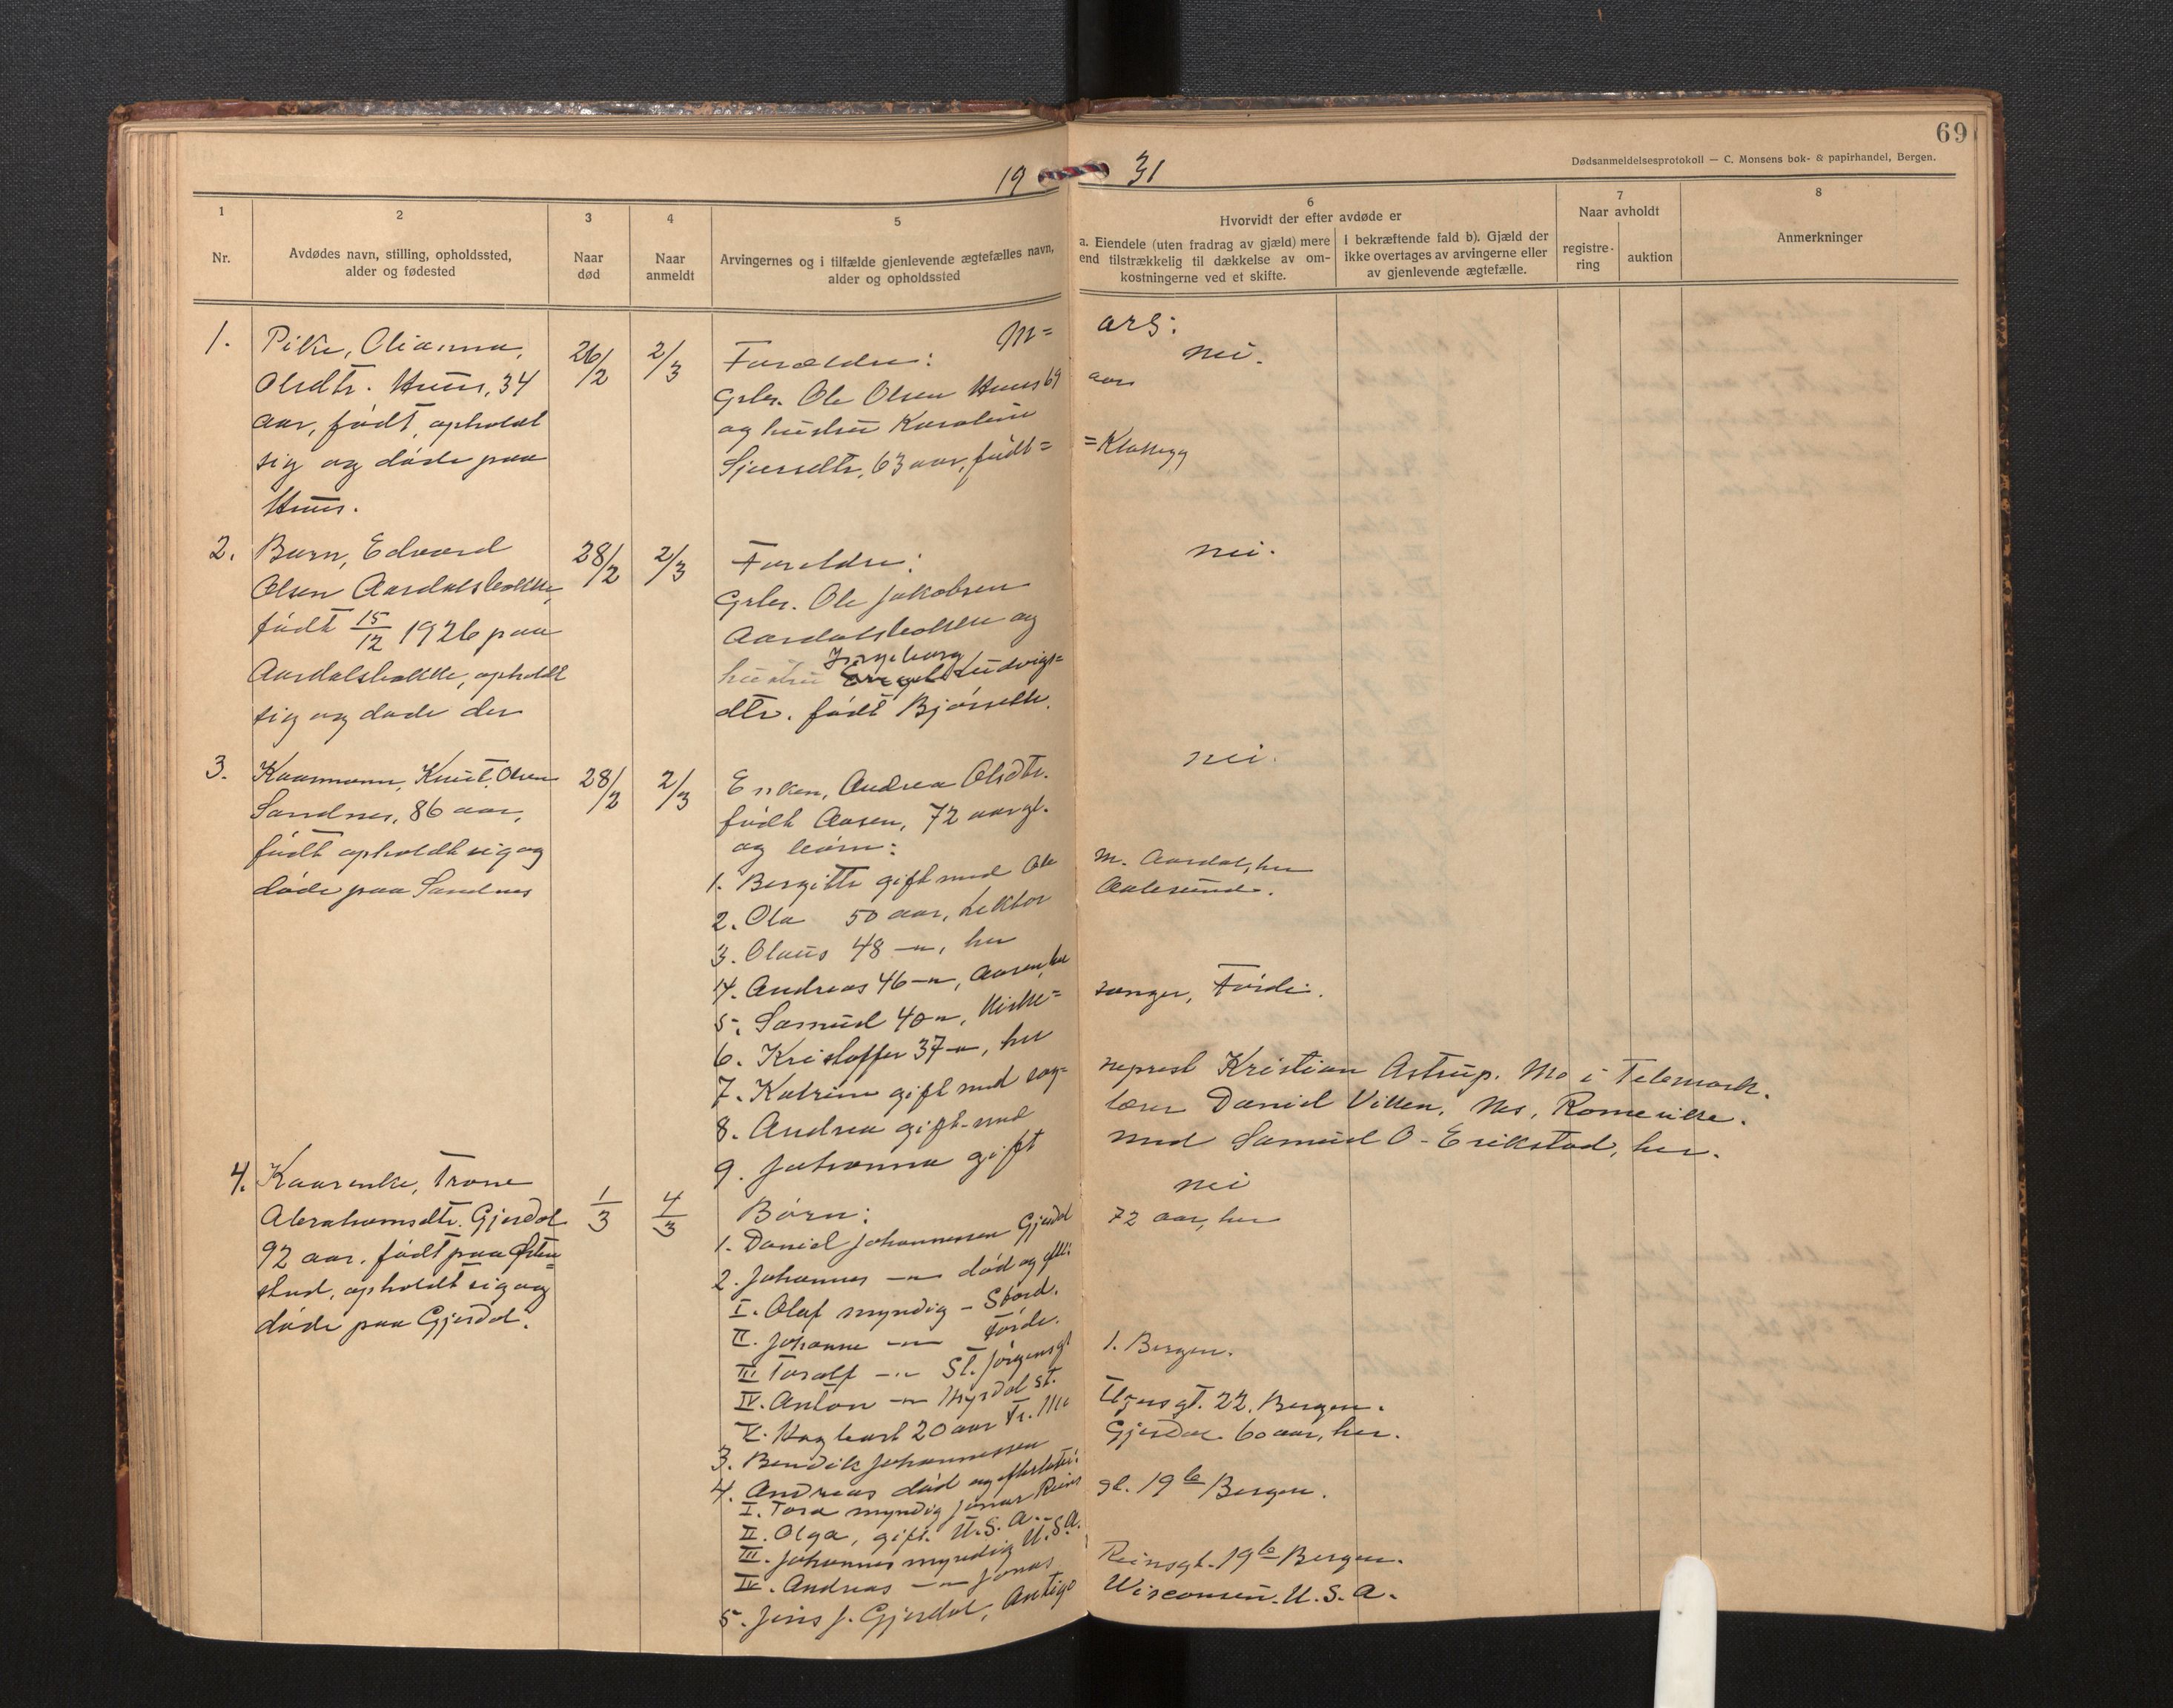 69
Dødsanmeldelsesprotokoll — C. Monsens bok- & papirhandel, Bergen.
19 31
1
2
3
4
5
6
7
8
Nr.
Avdødes navn, stilling, opholdssted,
alder og fødested
Naar
død
Naar
anmeldt
Arvingernes og i tilfælde gjenlevende ægtefælles navn,
alder og opholdssted
Hvorvidt der efter avdøde er
a. Eiendele (uten fradrag av gjæld) mere
end tilstrækkelig til dækkelse av om-
kostningerne ved et skifte.
I bekræftende fald b). Gjæld der
ikke overtages av arvingerne eller
av gjenlevende ægtefælle.
Naar avholdt
registre-
ring
auktion
Anmerkninger
M= ars:
1.
Pike, Olianna,
Olsdtr. Huus, 34
aar, født, opholdt
sig og døde paa
Huus.
26/2
2/3
Forældre:
Grbr. Ole Olsen Huus 69 aar
og hustru Karoline
Sjursdtr, 63 aar, født= =Klaʃegg
nei.
2.
Barn, Edvard
Olsen Aardalsbakke,
født 15/12 1926 paa
Aardalsbakke, opholdt
sig og døde der
28/2
2/3
Foreldre:
Grbr. Ole Jakobsen
Aardalsbakke og
Ingeborg
hustru Ludvigs=
dtr. født
nei.
3.
Kaarmann, Knut Olsen
Sandnes, 86 aar,
født opholdt sig og
døde paa Sandnes
28/2
2/3
Enken, Andrea Olsdtr.
født Aasen, 72 aar gl.
og børn:
1. Bergitte gift med Ole M. Aardal, her
2. Ola 50 aar, Lektor Aalesund.
3. Olaus 48 —"—, her
4. Andreas 46 —"—, Aasen, her
5. Samuel 40 —"—, Kirke= sanger, Førde.
6. Kristoffer 37 —"—, her
7. Katrine gift med sog= neprest Kristian Astrup. Mo i Telemark.
8. Andrea gift med lærer Daniel Villen, Nes, Romerike.
9. Johanna gift med Samuel O. Erikstad, her.
nei.
4.
Kaarenke, Trone
Abrahamsdtr. Gjerdal
92 aar, født paa Østen=
stad, opholdt sig og
døde paa Gjerdal.
1/3
4/3
Børn:
nei
1. Daniel Johannessen Gjerdal 72 aar, her
2. Johannes —"— død og eftl:
I. Olaf myndig - Stord.
II. Johanne —"— Førde.
III Toralf —"— St. Jørgensgt 1. Bergen.
IV. Anton —"— Myrdal st.
V. Hagbart 20 aar 22, Bergen.
3. Bendik Johannessen Gjerdal 60 aar, her.
4. Andreas død og efterlater:
I. Tora myndig Jonas Reins gt. 19 b Bergen.
II. Olga, gift. U.S.A.
III. Johannes myndig U.S.A.
IV. Andreas —"— Jonas Reinsgt. 19 b Bergen.
5. Jens J. Gjerdal, Antigo Wisconsin. U.S.A.